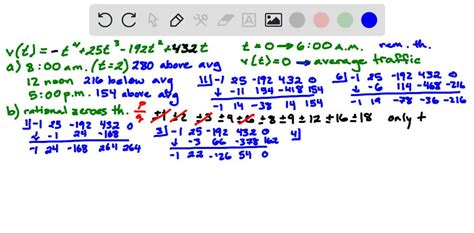 v(t) = -t⁴ + 25t³ - 192t² + 432t   t = 0 → 6:00 a.m.   rem. th.
a) 8:00 am. (t=2) 280 above avg   v(t) = 0 → average traffic
12 noon 216 below avg
5:00 p.m. 154 above avg
11| -1 25 -192 432 0
↓ -11 154 -418 154
-1 14 -38 14 154
6| -1 25 -192 432 0
↓ -6 114 -468 -216
-1 19 -78 -36 -216
b) rational zeroes th. p/q ±1 ±2 ±3 ±9 ±6 ±8 ±9 ±12 ±16 ±18 only +
1| -1 25 -192 432 0
↓ -1 24 -168
-1 24 -168 264 264
3| -1 25 -192 432 0
↓ -3 66 -378 162
-1 22 -126 54 0
4|